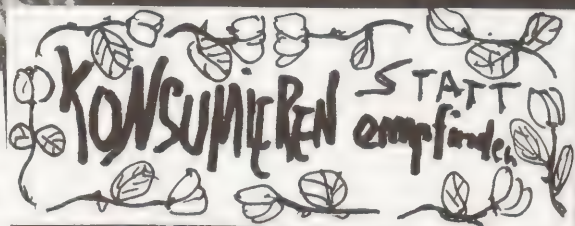 KONSUMIEREN STATT empfinden